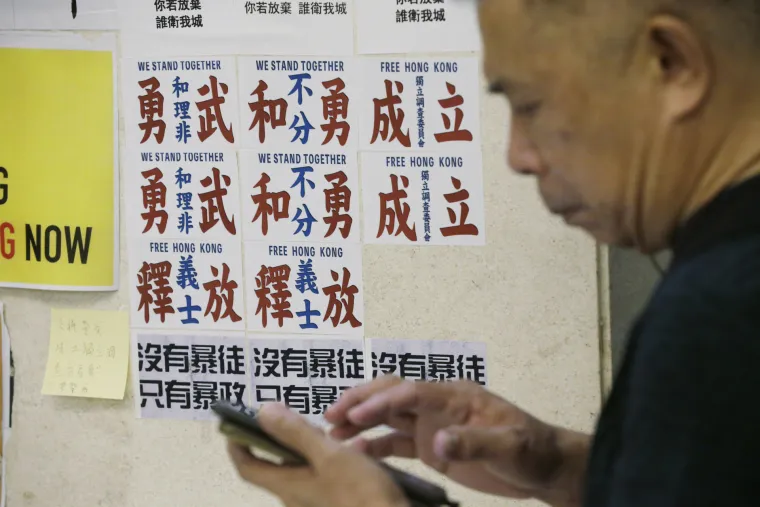 你若放棄
誰衛我城
你若放棄
誰衛我城
你若放棄
誰衛我城
WE STAND TOGETHER
勇 和理非 武
WE STAND TOGETHER
和 不分 勇
FREE HONG KONG
成 獨立調查委員會 立
WE STAND TOGETHER
勇 和理非 武
WE STAND TOGETHER
和 不分 勇
FREE HONG KONG
成 獨立調查委員會 立
FREE HONG KONG
釋 義士 放
FREE HONG KONG
釋 義士 放
沒有暴徒
只有暴政
沒有暴徒
只有暴政
沒有暴徒
G
G NOW